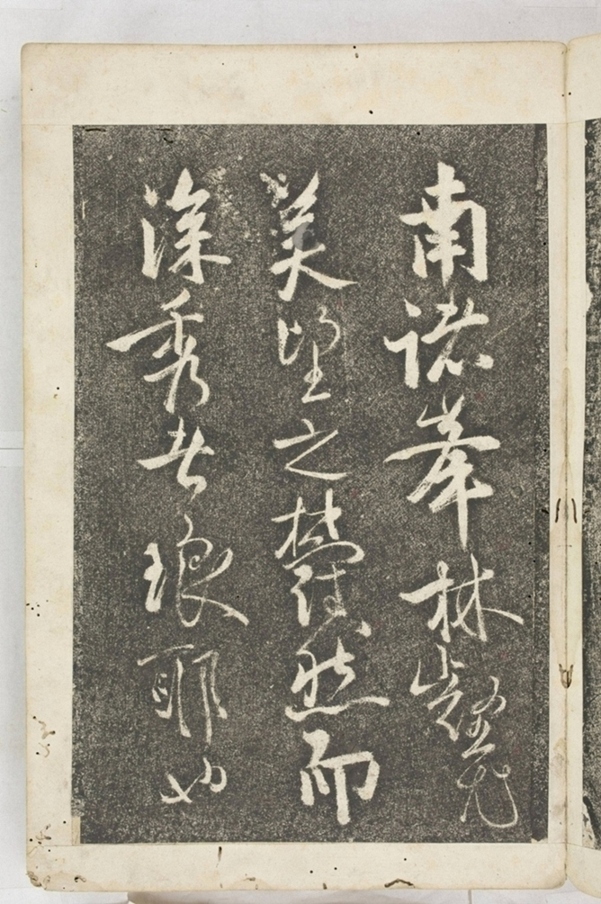 南諸峯林壑尤
美望之蔚然而
深秀者琅耶也